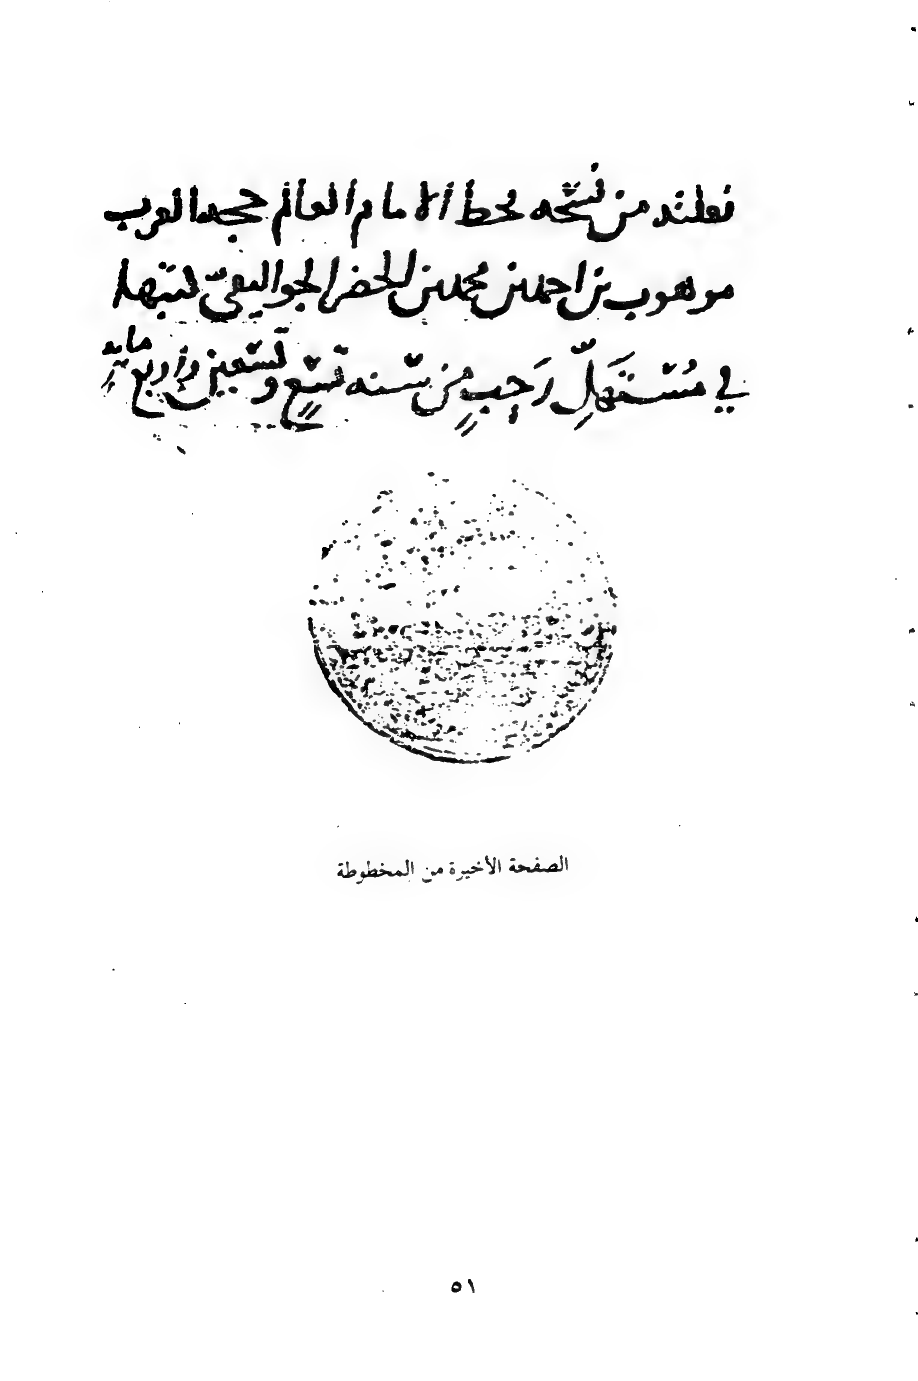 نقلته من نسخه بخط الامام العالم حجه العرب
موهوب بن احمد بن محمد بن الخضر الجواليقي كتبها
في مُسْتَهَلِّ رَجبٍ مِن سنه تسْعٍ وتسْعين وأربع مايةٍ
الصفحة الأخيرة من المخطوطة
٥١